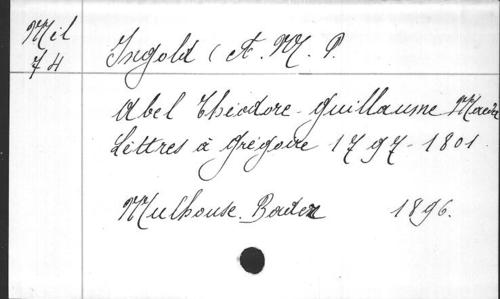 Mil
74
Ingold (A. M. P.
Abel Théodore-Guillaume
Lettres à Grégoire 1797-1801
Mulhouse. Bader 1896.